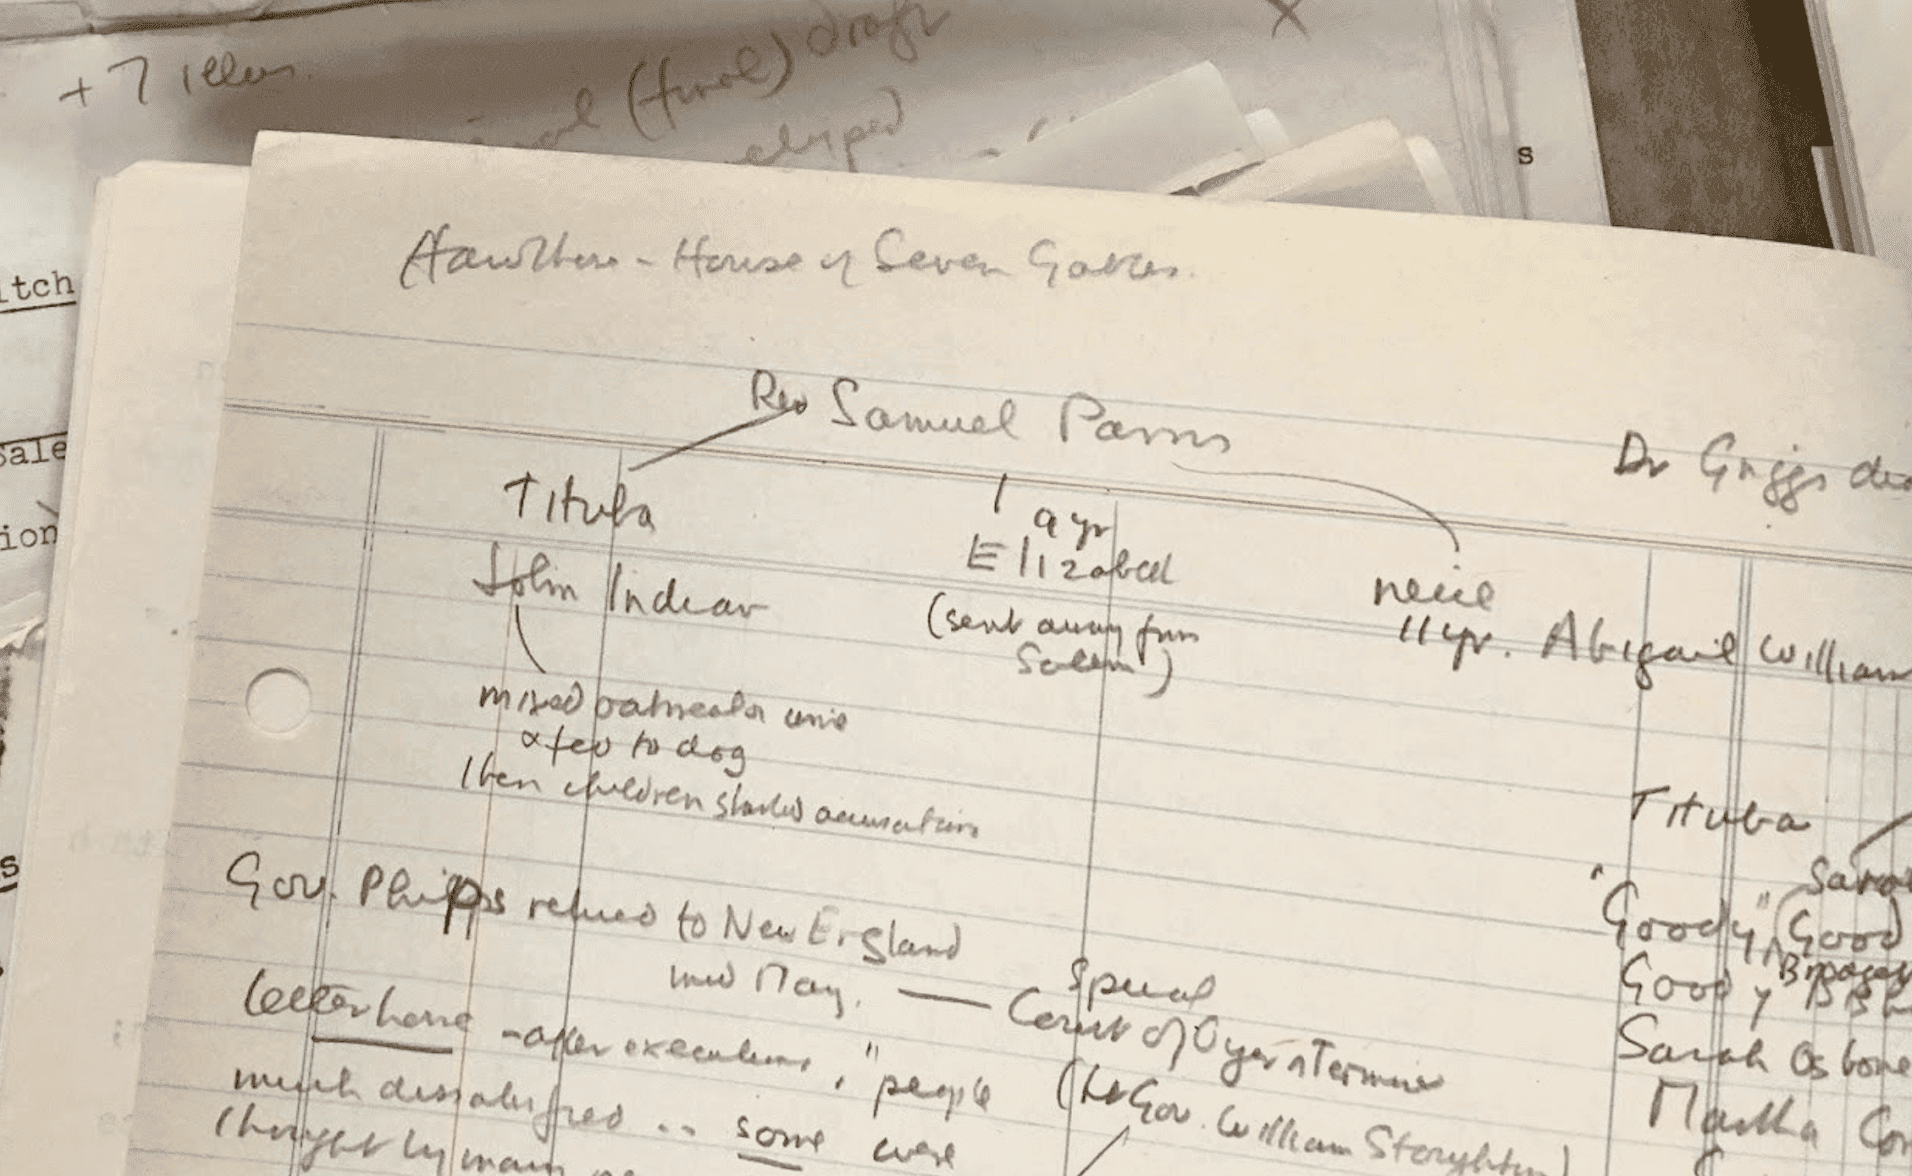 + 7 illus.
(final) draft
x
s
itch
Sale
ion
s
Hawthorne - House of Seven Gables.
Rev Samuel Parris
Dr Griggs
Tituba
9 yr
Elizabeth
John Indian
(sent away from
Salem)
niece
11 yr. Abigail William
mixed oatmeal urine
& fed to dog
then children started accusations
Tituba
Sara
"Goody" Good
Goody
Sarah Osborne
Martha Cor
Gov. Phipps returned to New England
mid May. — Special
Court of Oyer & Terminer
(Lt Gov. William Stoughton)
letter home - after executions, "people
much dissatisfied .. some were
thought by many